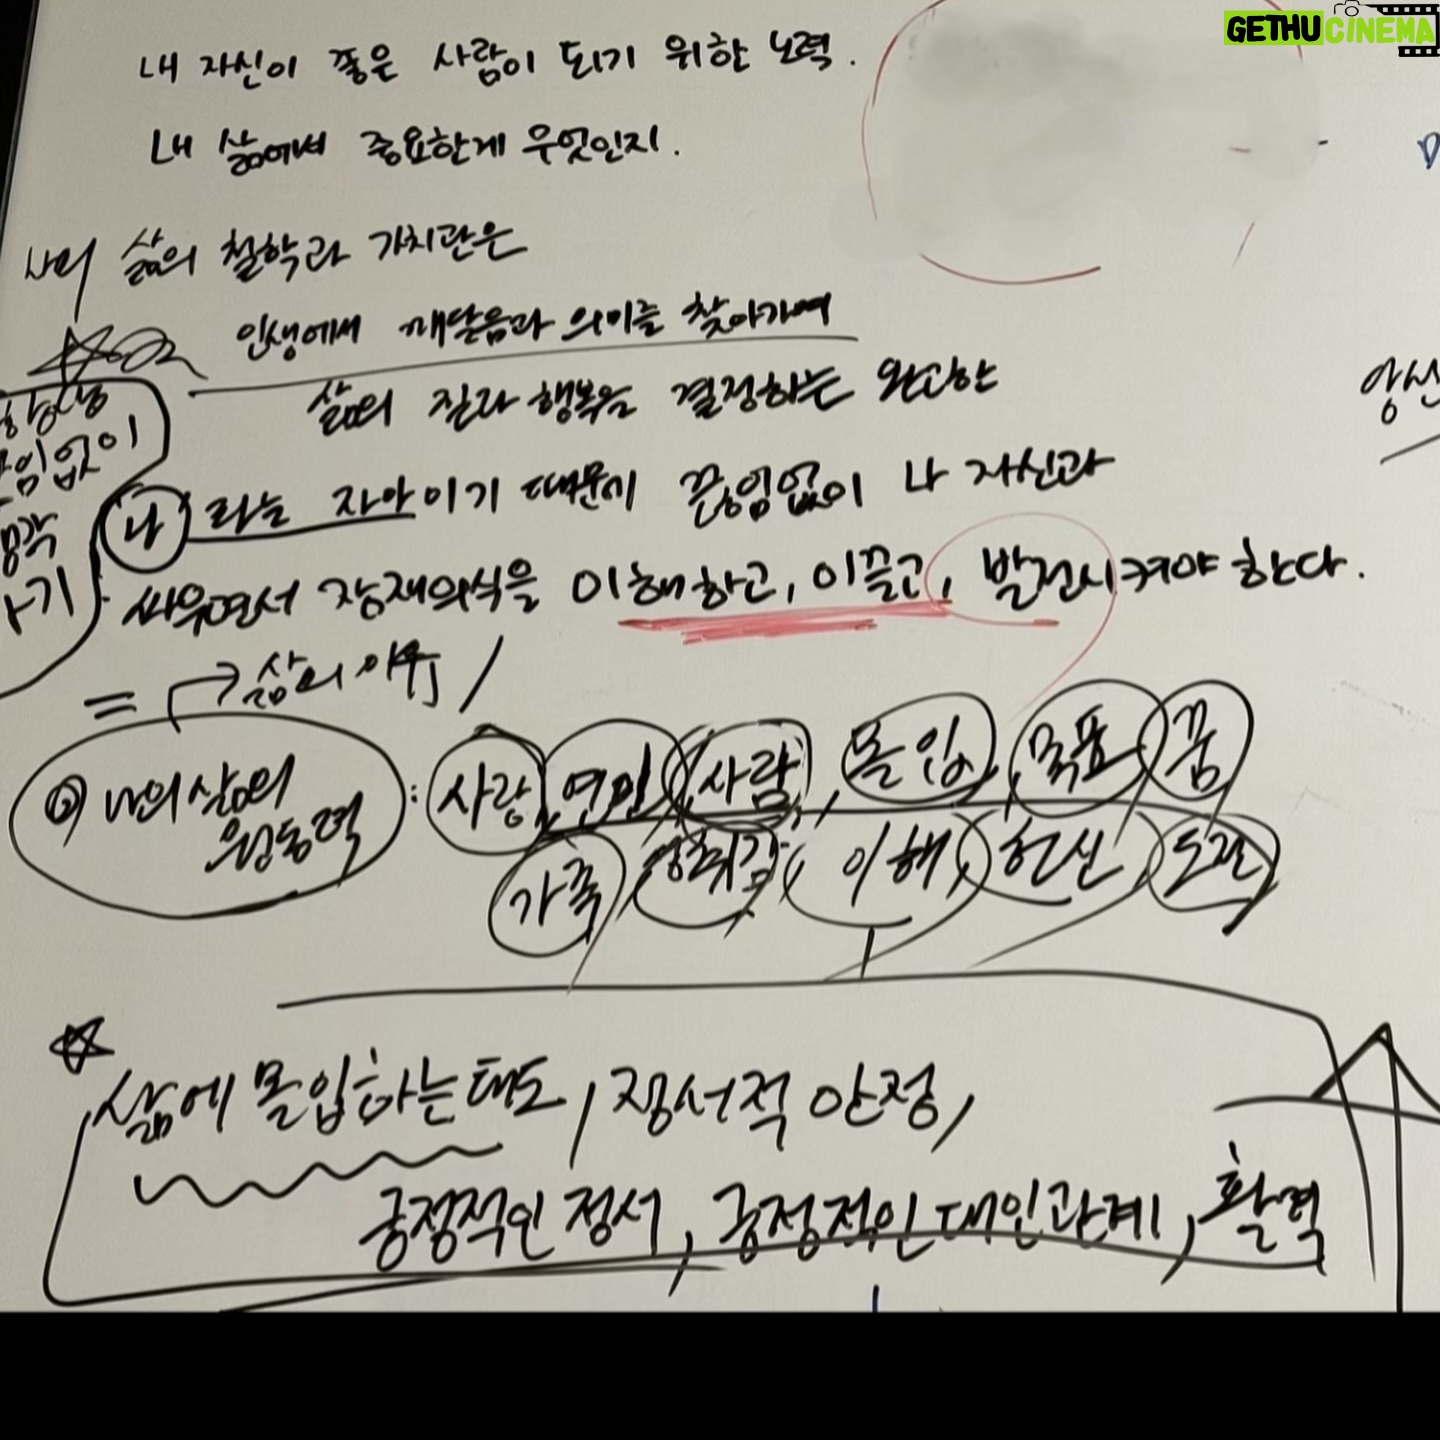 GETHUCINEMA
내 자신이 좋은 사람이 되기 위한 노력.
내 삶에서 중요한게 무엇인지.
나의 삶의 철학과 가치관은
인생에서 깨달음과 의미를 찾아가며
삶의 질과 행복을 결정하는 완고한
나 라는 자아이기 때문에 끊임없이 나 자신과
싸우면서 잠재의식을 이해하고, 이끌고, 발전시켜야 한다.
항상
끊임없이
생각
하기
= 삶의 이유
나의 삶의 원동력 : 사랑, 연민, 사람, 몰입, 목표, 꿈
가족, 성취감, 이해, 헌신, 도전
삶에 몰입하는 태도, 정서적 안정,
긍정적인 정서, 긍정적인 대인관계, 활력